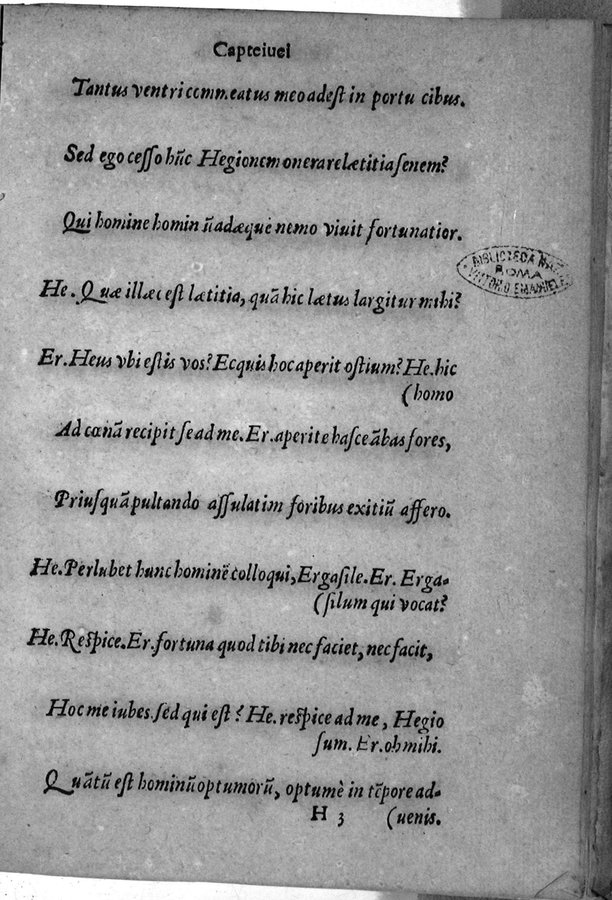 Capteiuei
Tantus ventri commeatus meo adeſt in portu cibus.
Sed ego ceſſo hũc Hegionem onerare lætitia ſenem?
Qui homine homin ũ adæque nemo viuit fortunatior.
He. Quæ illæc eſt lætitia, quã hic lætus largitur mihi?
Er. Heus vbi eſtis vos? Ecquis hoc aperit oſtium? He. hic
(homo
Ad cœnã recipit ſe ad me. Er. aperite haſce ãbas fores,
Priuſquã pultando aſſulatim foribus exitiũ affero.
He. Perlubet hunc hominẽ colloqui, Ergaſile. Er. Erga-
(ſilum qui vocat?
He. Reſpice. Er. fortuna quod tibi nec faciet, nec facit,
Hoc me iubes. ſed qui eſt? He. reſpice ad me, Hegio
ſum. Er. oh mihi.
Quãtũ eſt hominũ optumorũ, optumè in tẽpore ad-
H 3 (uenis.
BIBLIOTECA NAZ
ROMA
VITTORIO EMANUELE